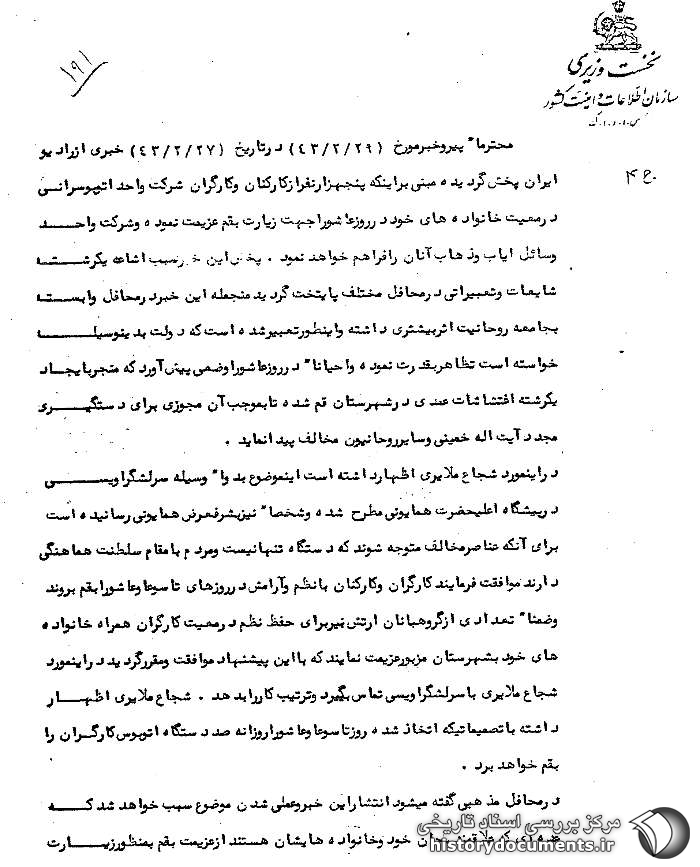 نخست وزیری
سازمان اطلاعات و امنیت کشور
۱۹۱
محترما" پیرو خبر مورخ (۴۳/۲/۲۹) در تاریخ (۴۳/۲/۲۷) خبری از رادیو
ایران پخش گردیده مبنی براینکه پنجهزار نفر از کارکنان و کارگران شرکت واحد اتوبوسرانی
در معیت خانواده های خود در روز عاشورا جهت زیارت بقم عزیمت نموده و شرکت واحد
وسائل ایاب و ذهاب آنان را فراهم خواهد نمود . پخش این خبر سبب اشاعه یکرشته
شایعات و تعبیراتی در محافل مختلف پایتخت گردید منجمله این خبر در محافل وابسته
بجامعه روحانیت اثر بیشتری داشته و اینطور تعبیر شده است که دولت بدینوسیله
خواسته است تظاهر بقدرت نموده و احیانا" در روز عاشورا وضعی پیش آورد که منجر بایجاد
یکرشته اغتشاشات عمدی در شهرستان قم شده تا بموجب آن مجوزی برای دستگیری
مجدد آیت اله خمینی و سایر روحانیون مخالف پیدا نماید .
در اینمورد شجاع ملایری اظهار داشته است اینموضوع بدوا" وسیله سرلشگر اویسی
در پیشگاه اعلیحضرت همایونی مطرح شده و شخصا" نیز بشرفعرض همایونی رسانیده است
برای آنکه عناصر مخالف متوجه شوند که دستگاه تنها نیست و مردم با مقام سلطنت هماهنگی
دارند موافقت فرمایند کارگران و کارکنان با نظم و آرامش در روزهای تاسوعا و عاشورا بقم بروند
وضمنا" تعدادی از گروهبانان ارتش نیز برای حفظ نظم در معیت کارگران همراه خانواده
های خود بشهرستان مزبور عزیمت نمایند که با این پیشنهاد موافقت و مقرر گردید در اینمورد
شجاع ملایری با سرلشگر اویسی تماس بگیرد و ترتیب کار را بدهد . شجاع ملایری اظهار
داشته با تصمیماتیکه اتخاذ شده روز تاسوعا و عاشورا روزانه صد دستگاه اتوبوس کارگران را
بقم خواهد برد .
در محافل مذهبی گفته میشود انتشار این خبر و عملی شدن موضوع سبب خواهد شد که
خود و خانواده هایشان هستند از عزیمت بقم بمنظور زیارت
مرکز بررسی اسناد تاریخی
historydocuments.ir